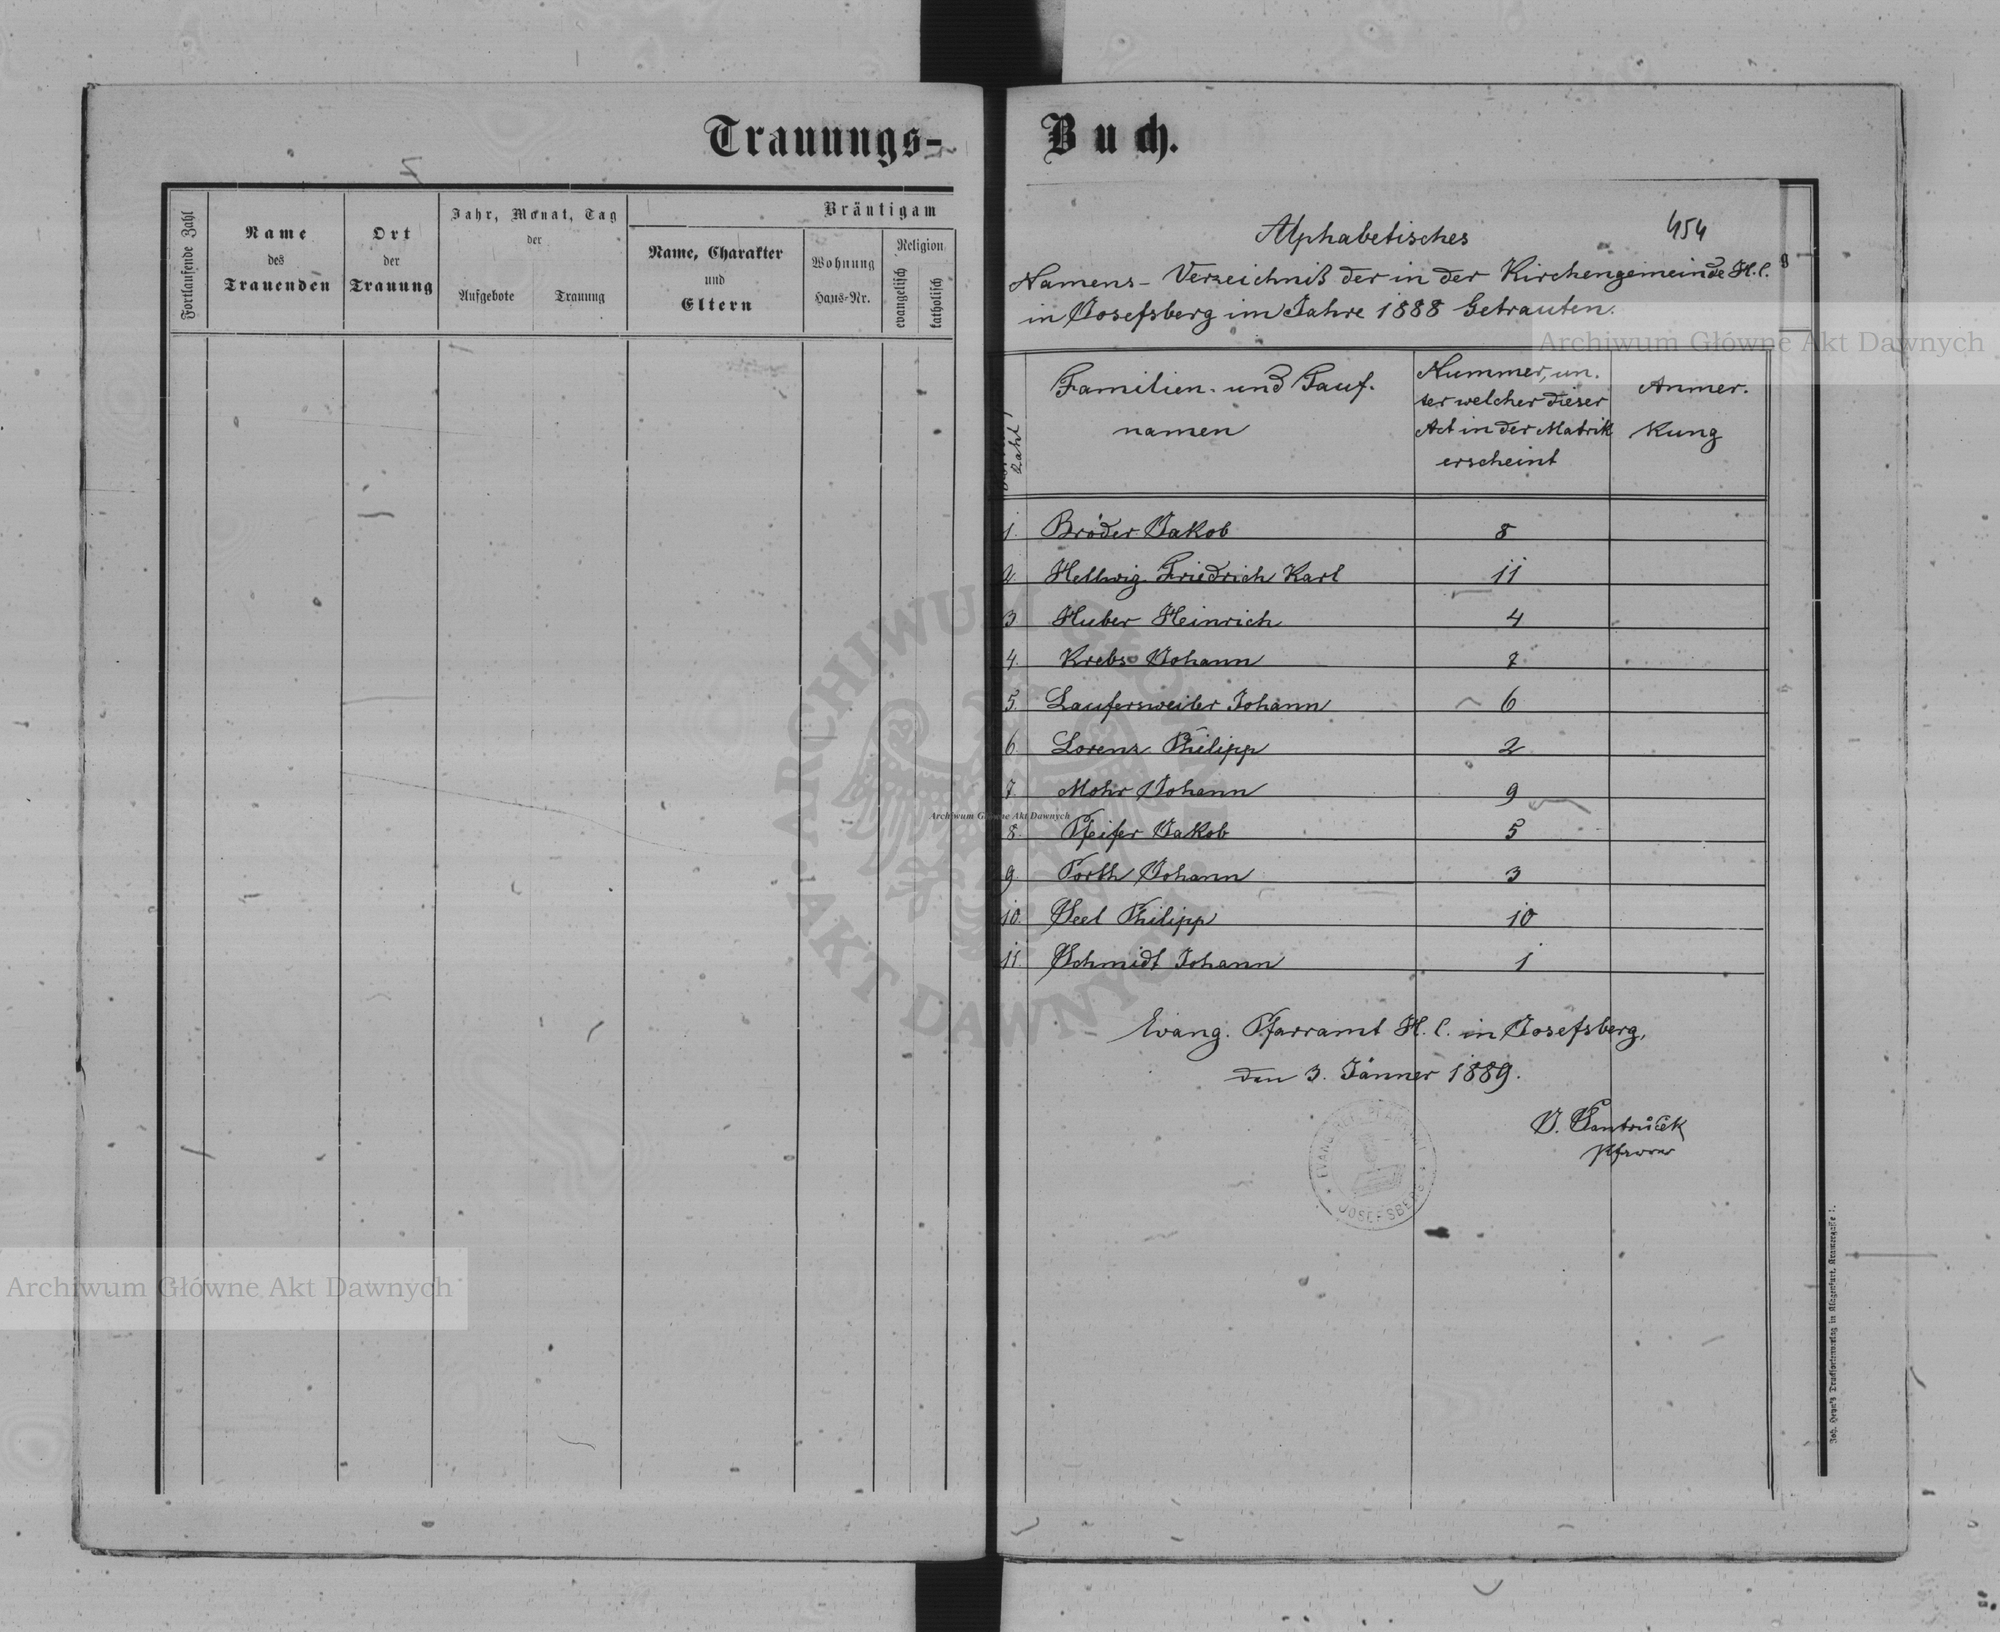 Trauungs-
Fortlaufende Zahl
Name
des
Trauenden
Ort
der
Trauung
Jahr, Monat, Tag
der
Aufgebote
Trauung
Bräutigam
Name, Charakter
und
Eltern
Wohnung
Haus-Nr.
Religion
evangelisch
katholisch
Buch.
454
Alphabetisches
Namens-Verzeichniß der in der Kirchengemeinde H. C.
in Josefsberg im Jahre 1888 Getrauten.
Zahl
Familien- und Tauf-
namen
Nummer, un-
ter welcher dieser
Act in der Matrik
erscheint
Anmer-
kung
1. Bröder Jakob 8
2. Hellwig Friedrich Karl 11
3 Huber Heinrich 4
4. Krebs Johann 7
5. Laufersweiler Johann 6
6 Lorenz Philipp 2
7. Mohr Johann 9
8. Pfeifer Jakob 5
9 Porth Johann 3
10. Seel Philipp 10
11. Schmidt Johann 1
Evang. Pfarramt H. C. in Josefsberg,
den 3. Jänner 1889.
Pfarrer
JOSEFSBERG
Joh. Heyn's Drucksortenverlag in Klagenfurt, Kramergasse 1.
Archiwum Główne Akt Dawnych
Archiwum Główne Akt Dawnych
Archiwum Główne Akt Dawnych
ARCHIWUM GŁÓWNE AKT DAWNYCH